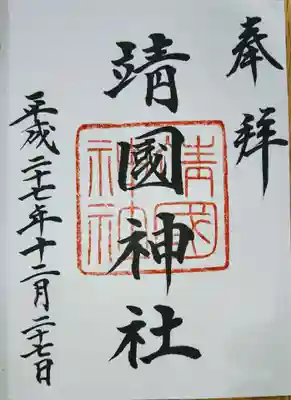 奉拝
靖國神社
靖國神社
平成二十七年十二月二十七日